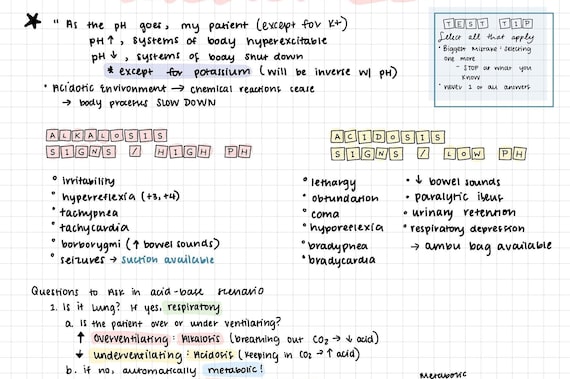 " As the pH goes, my patient (except for K+)
pH ↑, systems of body hyperexcitable
pH ↓, systems of body shut down
* except for potassium (will be inverse w/ pH)
• Acidotic Environment → chemical reactions cease
→ body process SLOW DOWN
TEST TIP
Select all that apply
• Biggest Mistake: selecting
one more
- STOP at what you
know
• never 1 or all answers
ALKALOSIS
SIGNS / HIGH PH
° irritability
° hyperreflexia (+3, +4)
° tachypnea
° tachycardia
° borborygmi (↑ bowel sounds)
° seizures → suction available
ACIDOSIS
SIGNS / LOW PH
° lethargy
° obtundation
° coma
° hyporeflexia
° bradypnea
° bradycardia
• ↓ bowel sounds
• paralytic ileus
• urinary retention
• respiratory depression
→ ambu bag available
Questions to Ask in acid-base scenario
1. Is it Lung? If yes, respiratory
a. Is the patient over or under ventilating?
↑ Overventilating: Alkalosis (breathing out CO2 → ↓ acid)
↓ underventilating: Acidosis (keeping in CO2 → ↑ acid)
b. if no, automatically metabolic!
Metabolic